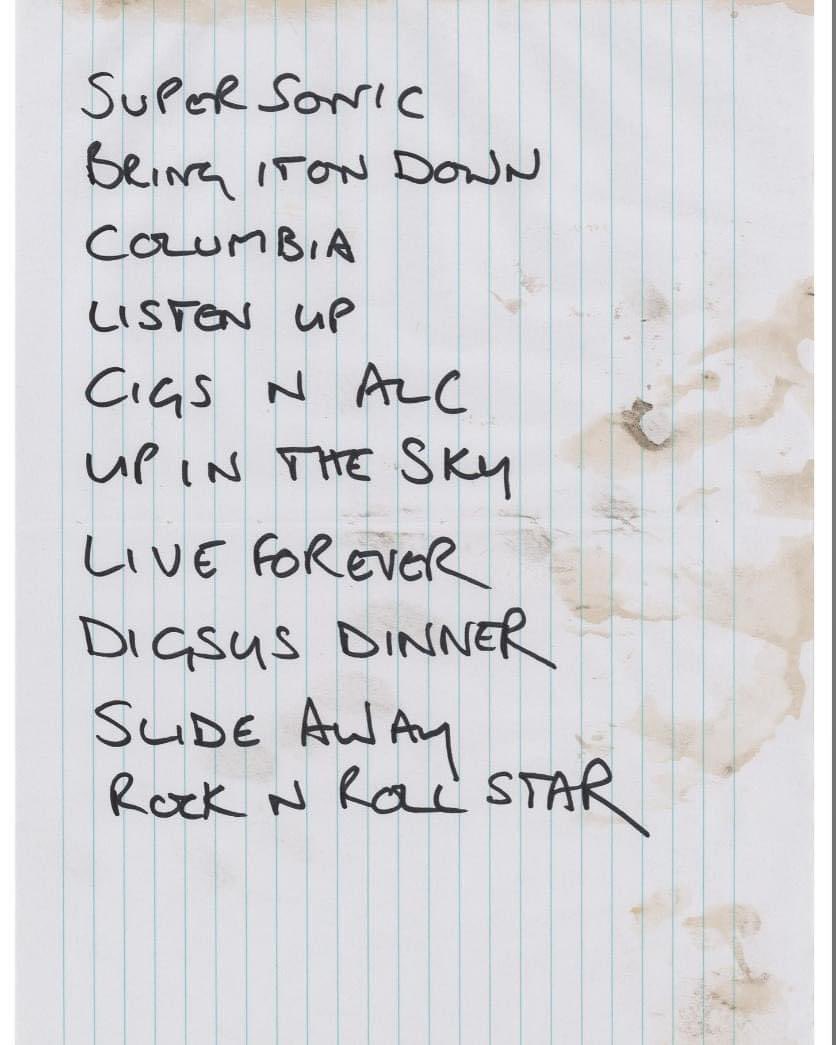 SUPERSONIC
BRING IT ON DOWN
COLUMBIA
LISTEN UP
CIGS N ALC
UP IN THE SKY
LIVE FOREVER
DIGSYS DINNER
SLIDE AWAY
ROCK N ROLL STAR